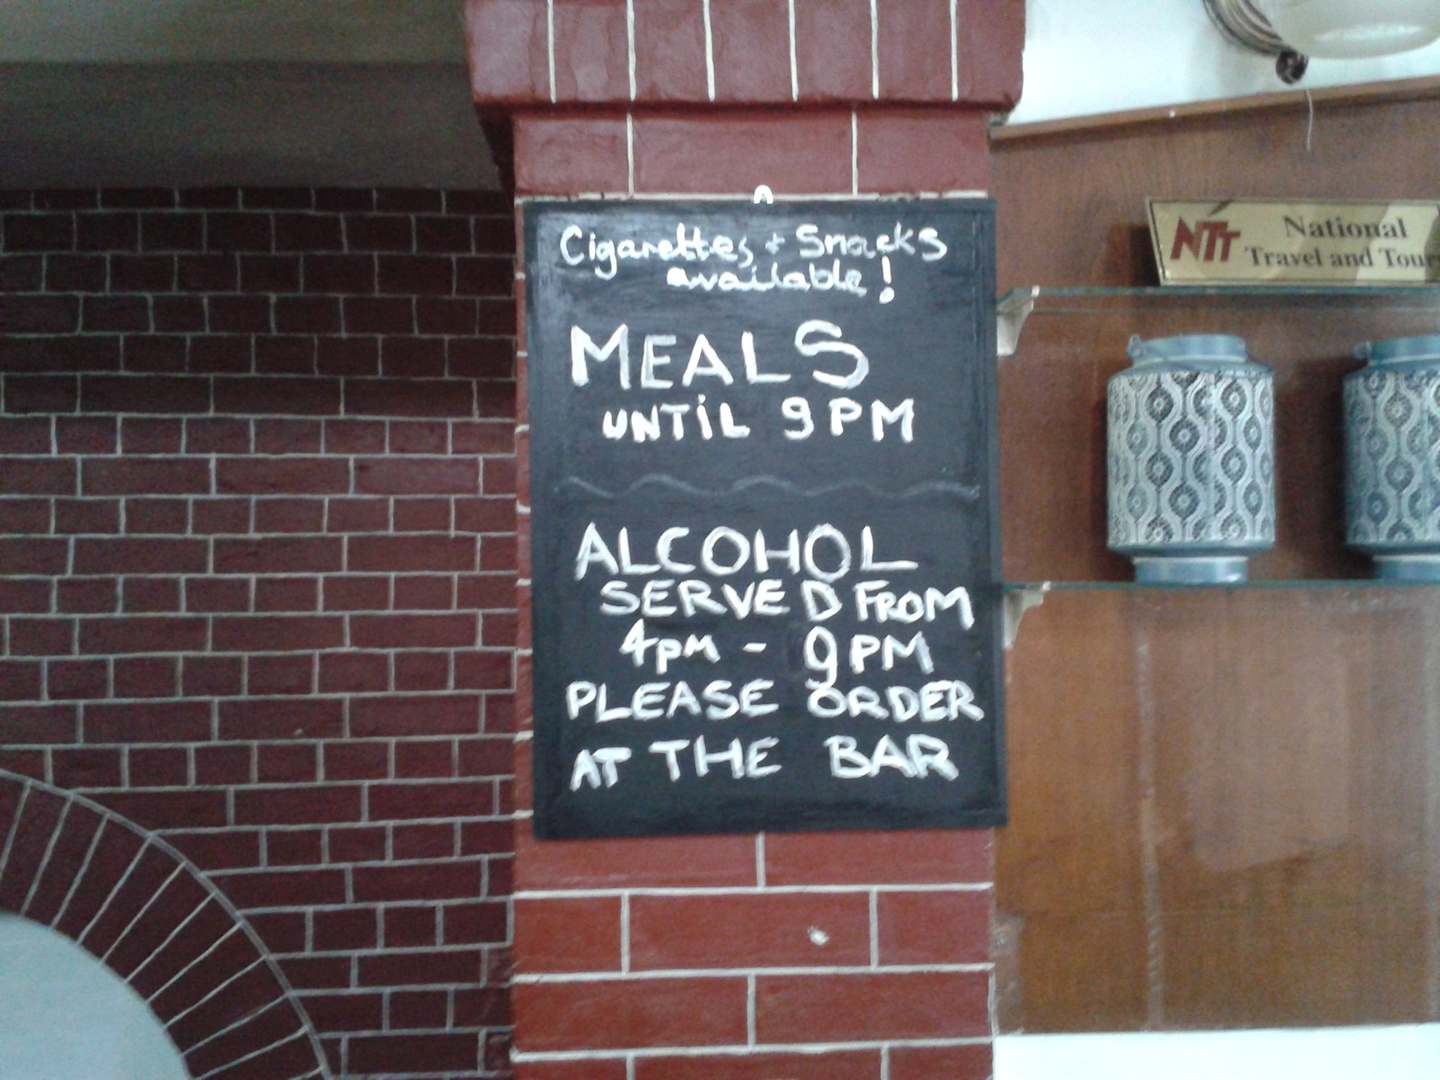 Cigarettes + Snacks
available!
MEALS
UNTiL 9PM
ALCOHOL
SERVED FROM
4pm - 9PM
PLEASE ORDER
AT THE BAR
NTT National
Travel and Tour